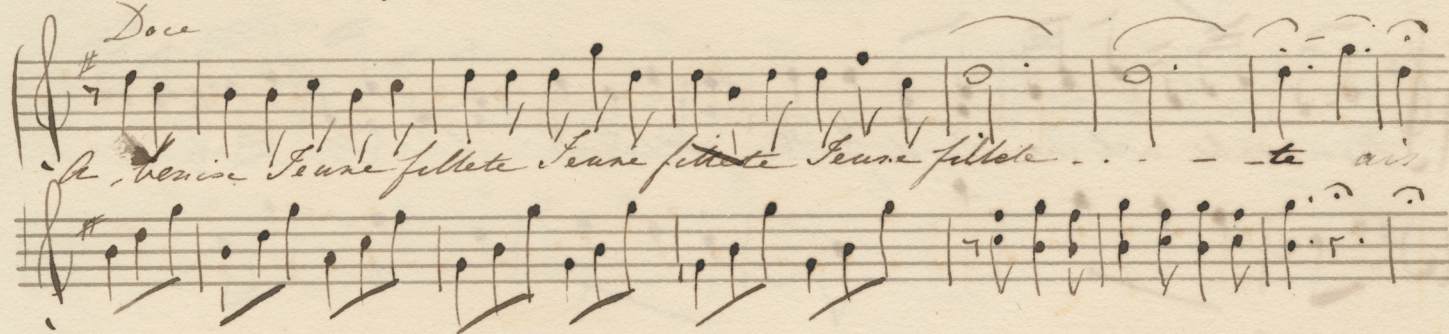 Doce
A venise Jeune fillete Jeune fillete Jeune fillete - - - - te ais